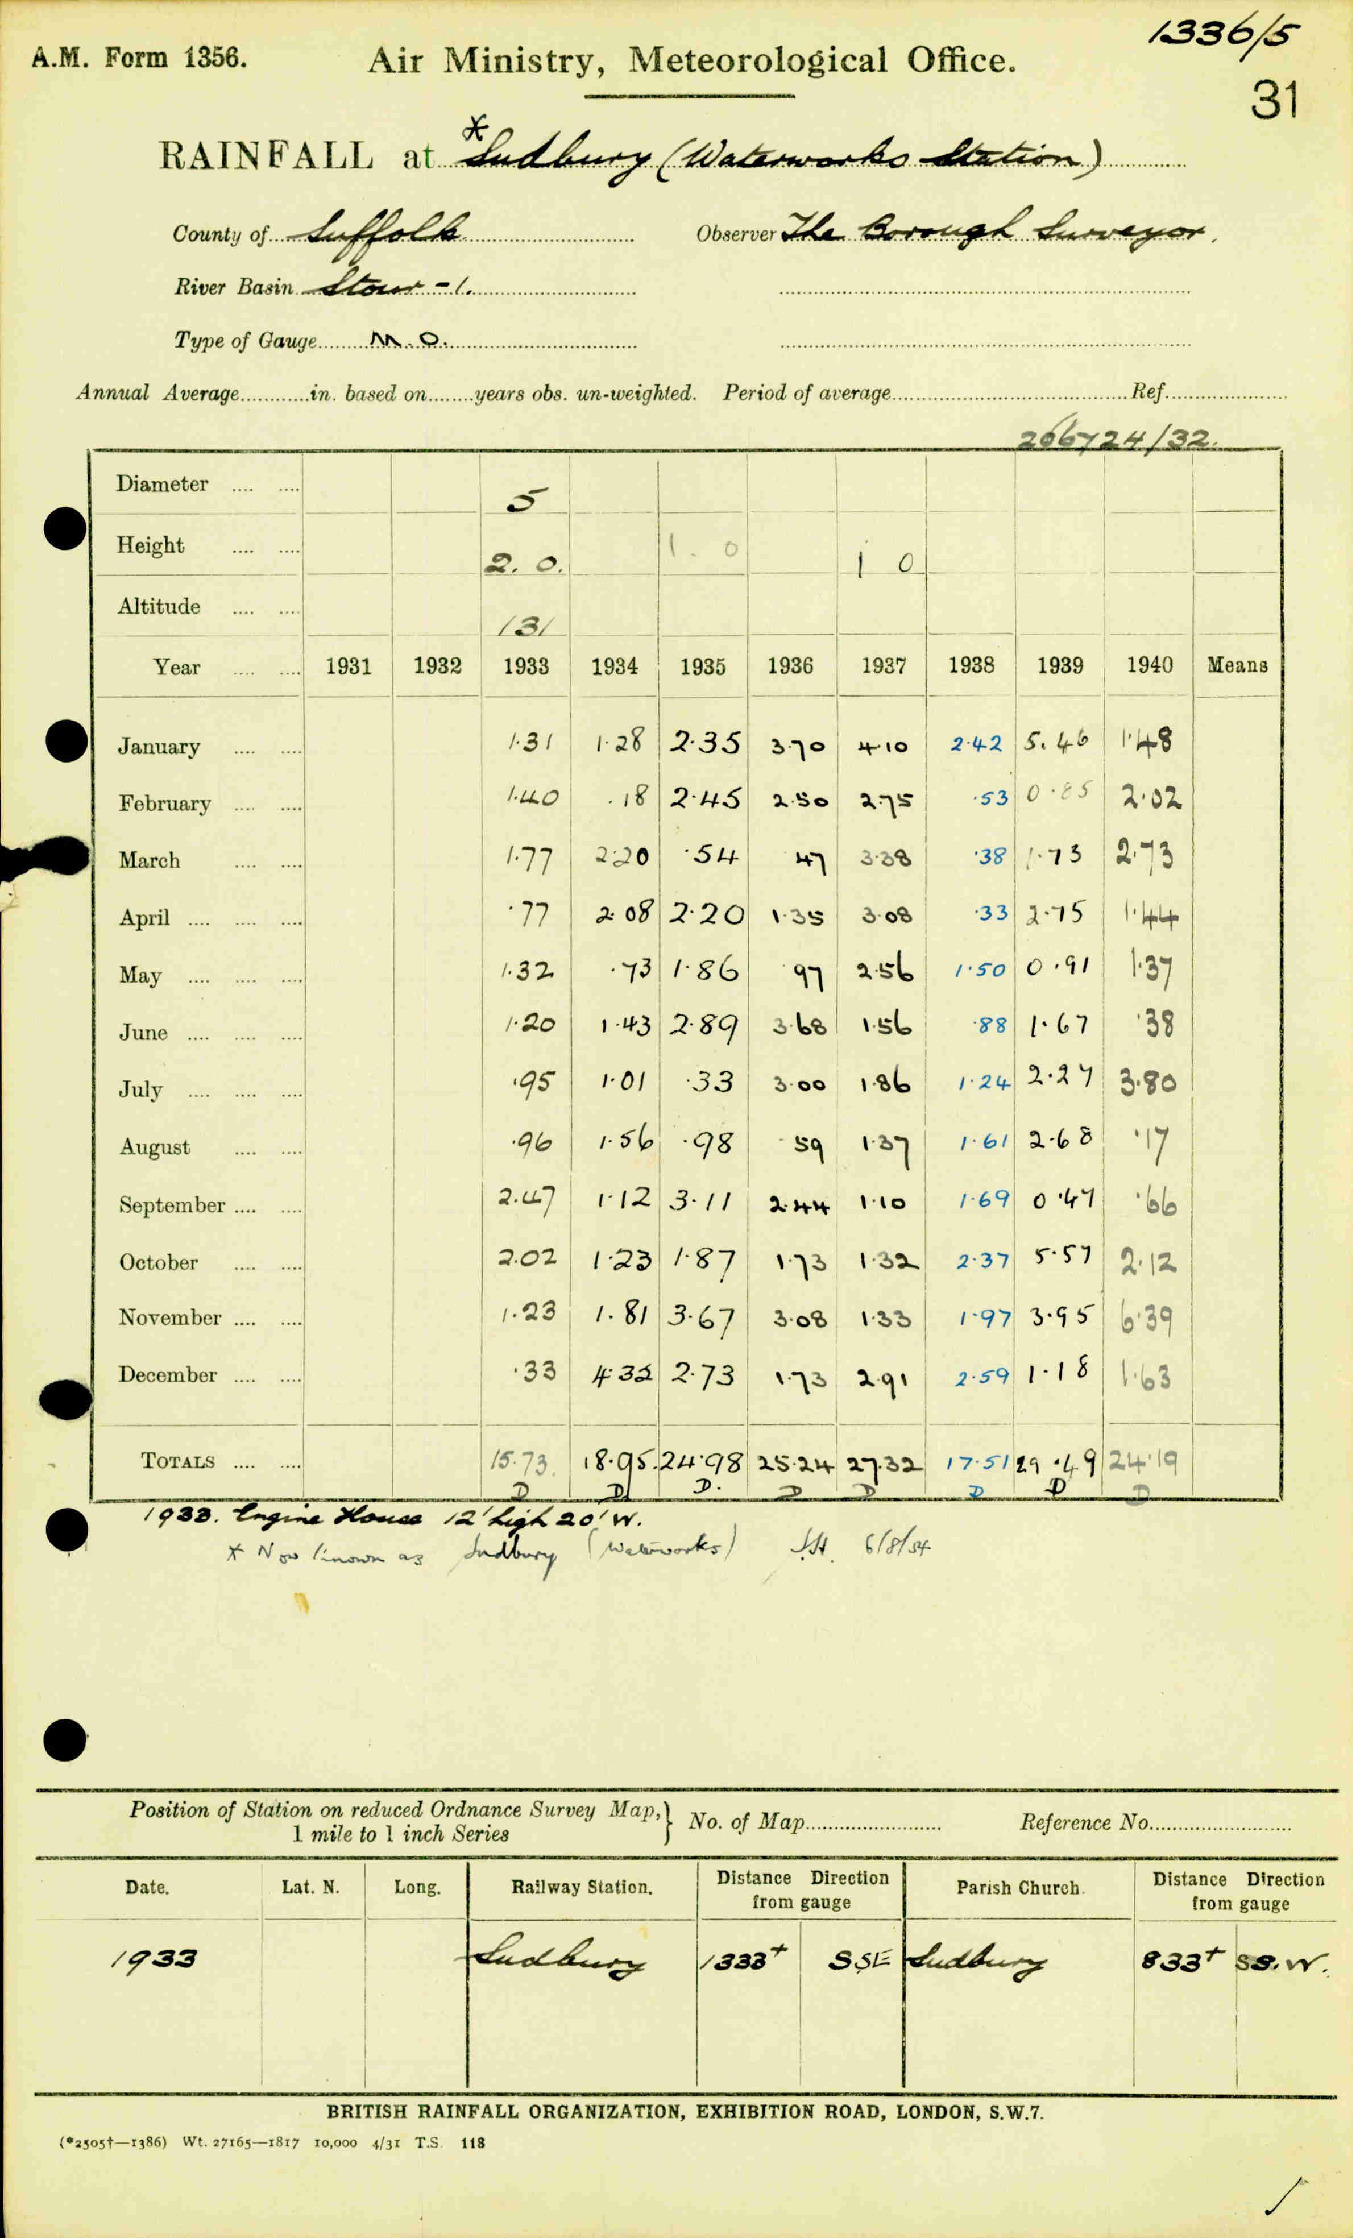 1336/5
A.M. Form 1356. Air Ministry, Meteorological Office.
31
RAINFALL at *Sudbury (Waterworks Station)
County of Suffolk Observer The Borough Surveyor.
River Basin Stour - 1.
Type of Gauge M.O.
Annual Average in. based on years obs. un-weighted. Period of average Ref.
266724/32.
Diameter 5
Height 2. 0. 1. 0 1 0
Altitude 131
Year 1931 1932 1933 1934 1935 1936 1937 1938 1939 1940 Means
January 1.31 1.28 2.35 3.70 4.10 2.42 5.46 1.48
February 1.40 .18 2.45 2.50 2.75 .53 0.85 2.02
March 1.77 2.20 .54 47 3.38 .38 1.73 2.73
April .77 2.08 2.20 1.35 3.08 .33 2.75 1.44
May 1.32 .73 1.86 .97 2.56 1.50 0.91 1.37
June 1.20 1.43 2.89 3.68 1.56 .88 1.67 .38
July .95 1.01 .33 3.00 1.86 1.24 2.27 3.80
August .96 1.56 .98 .59 1.37 1.61 2.68 .17
September 2.47 1.12 3.11 2.44 1.10 1.69 0.47 .66
October 2.02 1.23 1.87 1.73 1.32 2.37 5.57 2.12
November 1.23 1.81 3.67 3.08 1.33 1.97 3.95 6.39
December .33 4.32 2.73 1.73 2.91 2.59 1.18 1.63
TOTALS 15.73. 18.95. 24.98 25.24 27.32 17.51 29.49 24.19
D D D. D D D D D
1933. Engine House 12' high 20' W.
* Now known as Sudbury (Waterworks) 6/8/54
Position of Station on reduced Ordnance Survey Map, } No. of Map Reference No.
1 mile to 1 inch Series
Date. Lat. N. Long. Railway Station. Distance Direction from gauge Parish Church. Distance Direction from gauge
1933 Sudbury 1333+ SSE Sudbury 833+ SS.W.
BRITISH RAINFALL ORGANIZATION, EXHIBITION ROAD, LONDON, S.W.7.
(*2505†—1386) Wt. 27165—1817 10,000 4/31 T.S. 118